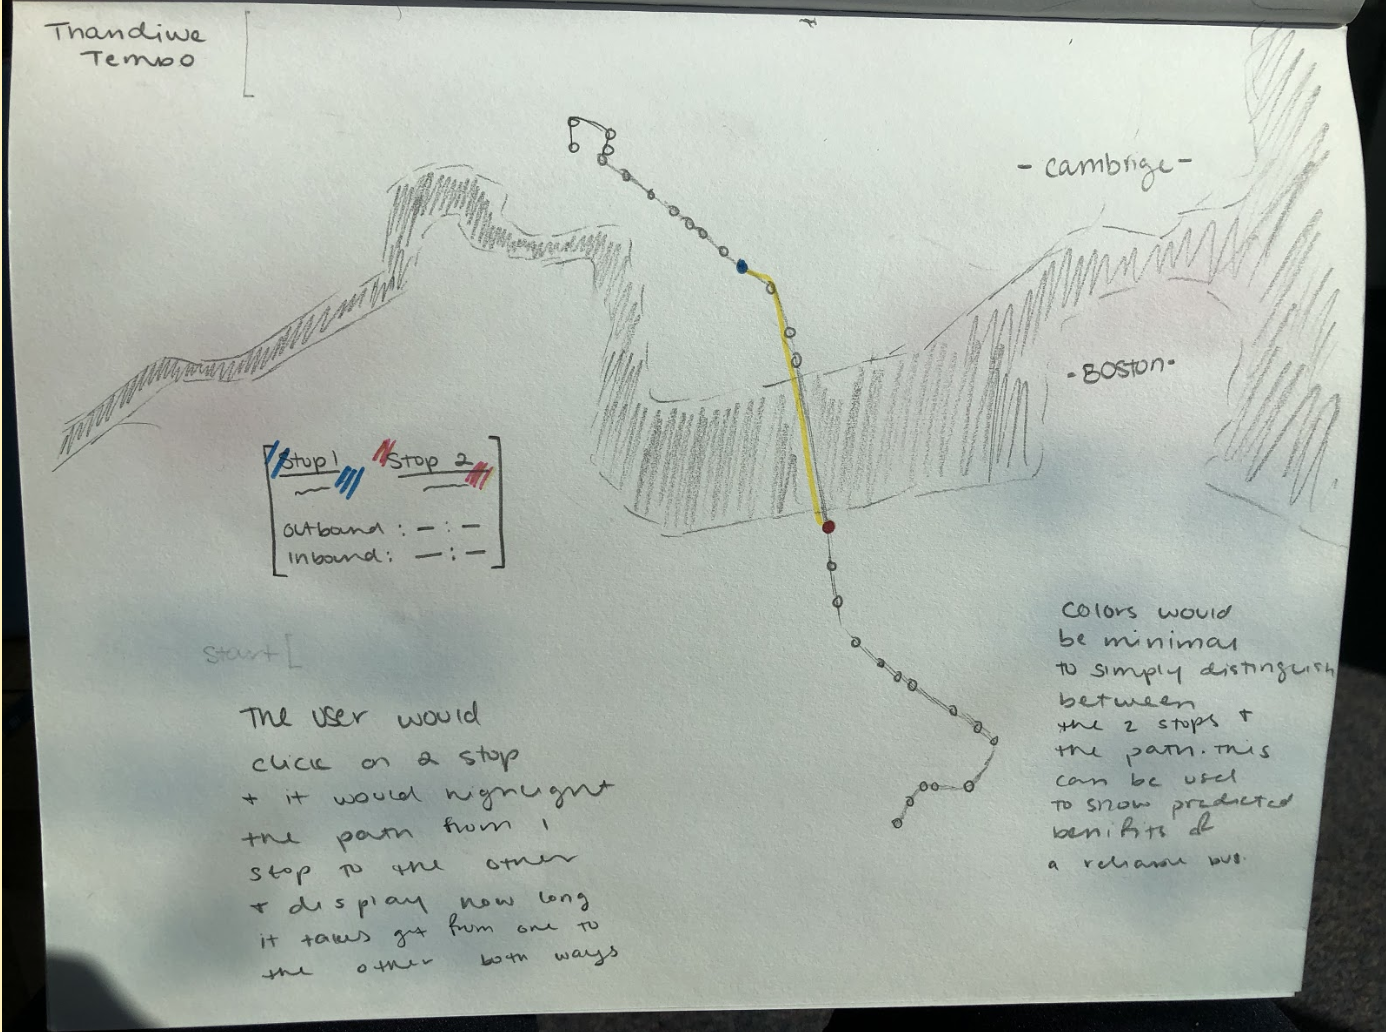 Thandiwe
Tembo
- Cambrige -
- Boston -
Stop 1 Stop 2
outbound : - : -
inbound : - : -
start [
The user would
click on 2 stop
+ it would highlight
the path from 1
stop to the other
+ display how long
it takes get from one to
the other both ways
Colors would
be minimal
to simply distinguish
between
the 2 stops +
the path. This
can be used
to show predicted
benifits of
a reliable bus.